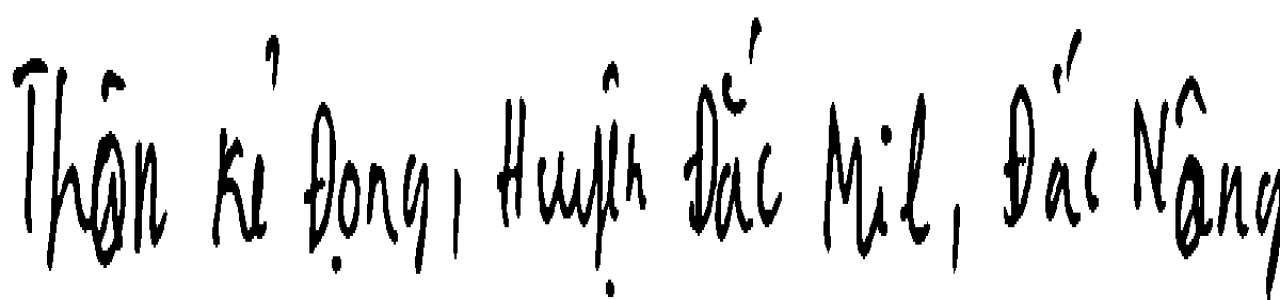 Thôn Kẻ Đọng, Huyện Đắc Mil, Đắc Nông